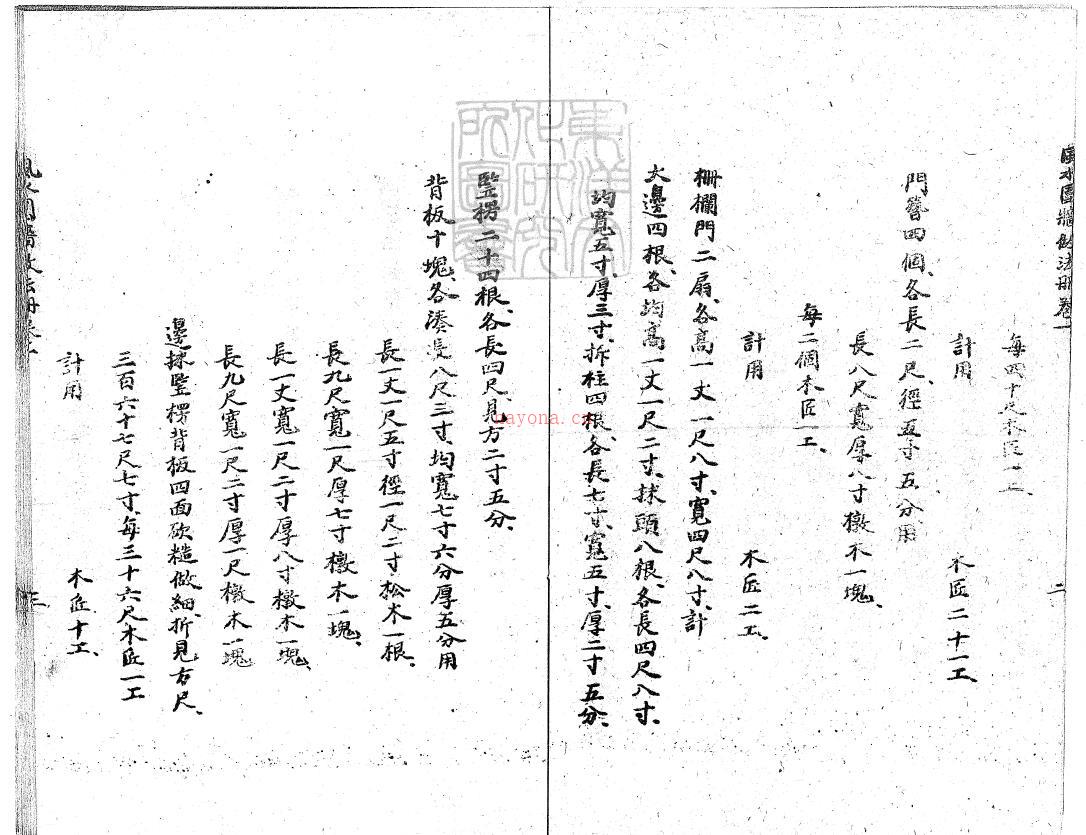 風水圍牆做法冊卷一
二
每四十尺木匠一工
計用
木匠二十一工、
門簪四個、各長二尺、徑五寸五分用
長八尺寬厚八寸檄木一塊、
每二個木匠一工、
計用
木匠二工、
柵欄門二扇、各高一丈一尺八寸、寬四尺八寸、計
大邊四根、各均高一丈一尺二寸、抹頭八根、各長四尺八寸、
均寬五寸、厚三寸、拆柱四根、各長七寸、寬五寸、厚二寸五分、
豎楞二十四根、各長四尺、見方二寸五分、
背板十塊、各湊長八尺三寸、均寬七寸六分厚五分用
長一丈一尺五寸徑一尺二寸、松木一根、
長九尺寬一尺厚七寸檄木一塊、
長一丈寬一尺二寸厚八寸檄木一塊、
長九尺寬一尺二寸厚一尺檄木一塊
邊抹豎楞背板四面砍糙做細、折見方尺、
三百六十七尺七寸、每三十六尺木匠一工
計用
木匠十工、
風水圍牆做法冊卷一
三
東洋文化研究所圖書
nayona.cn